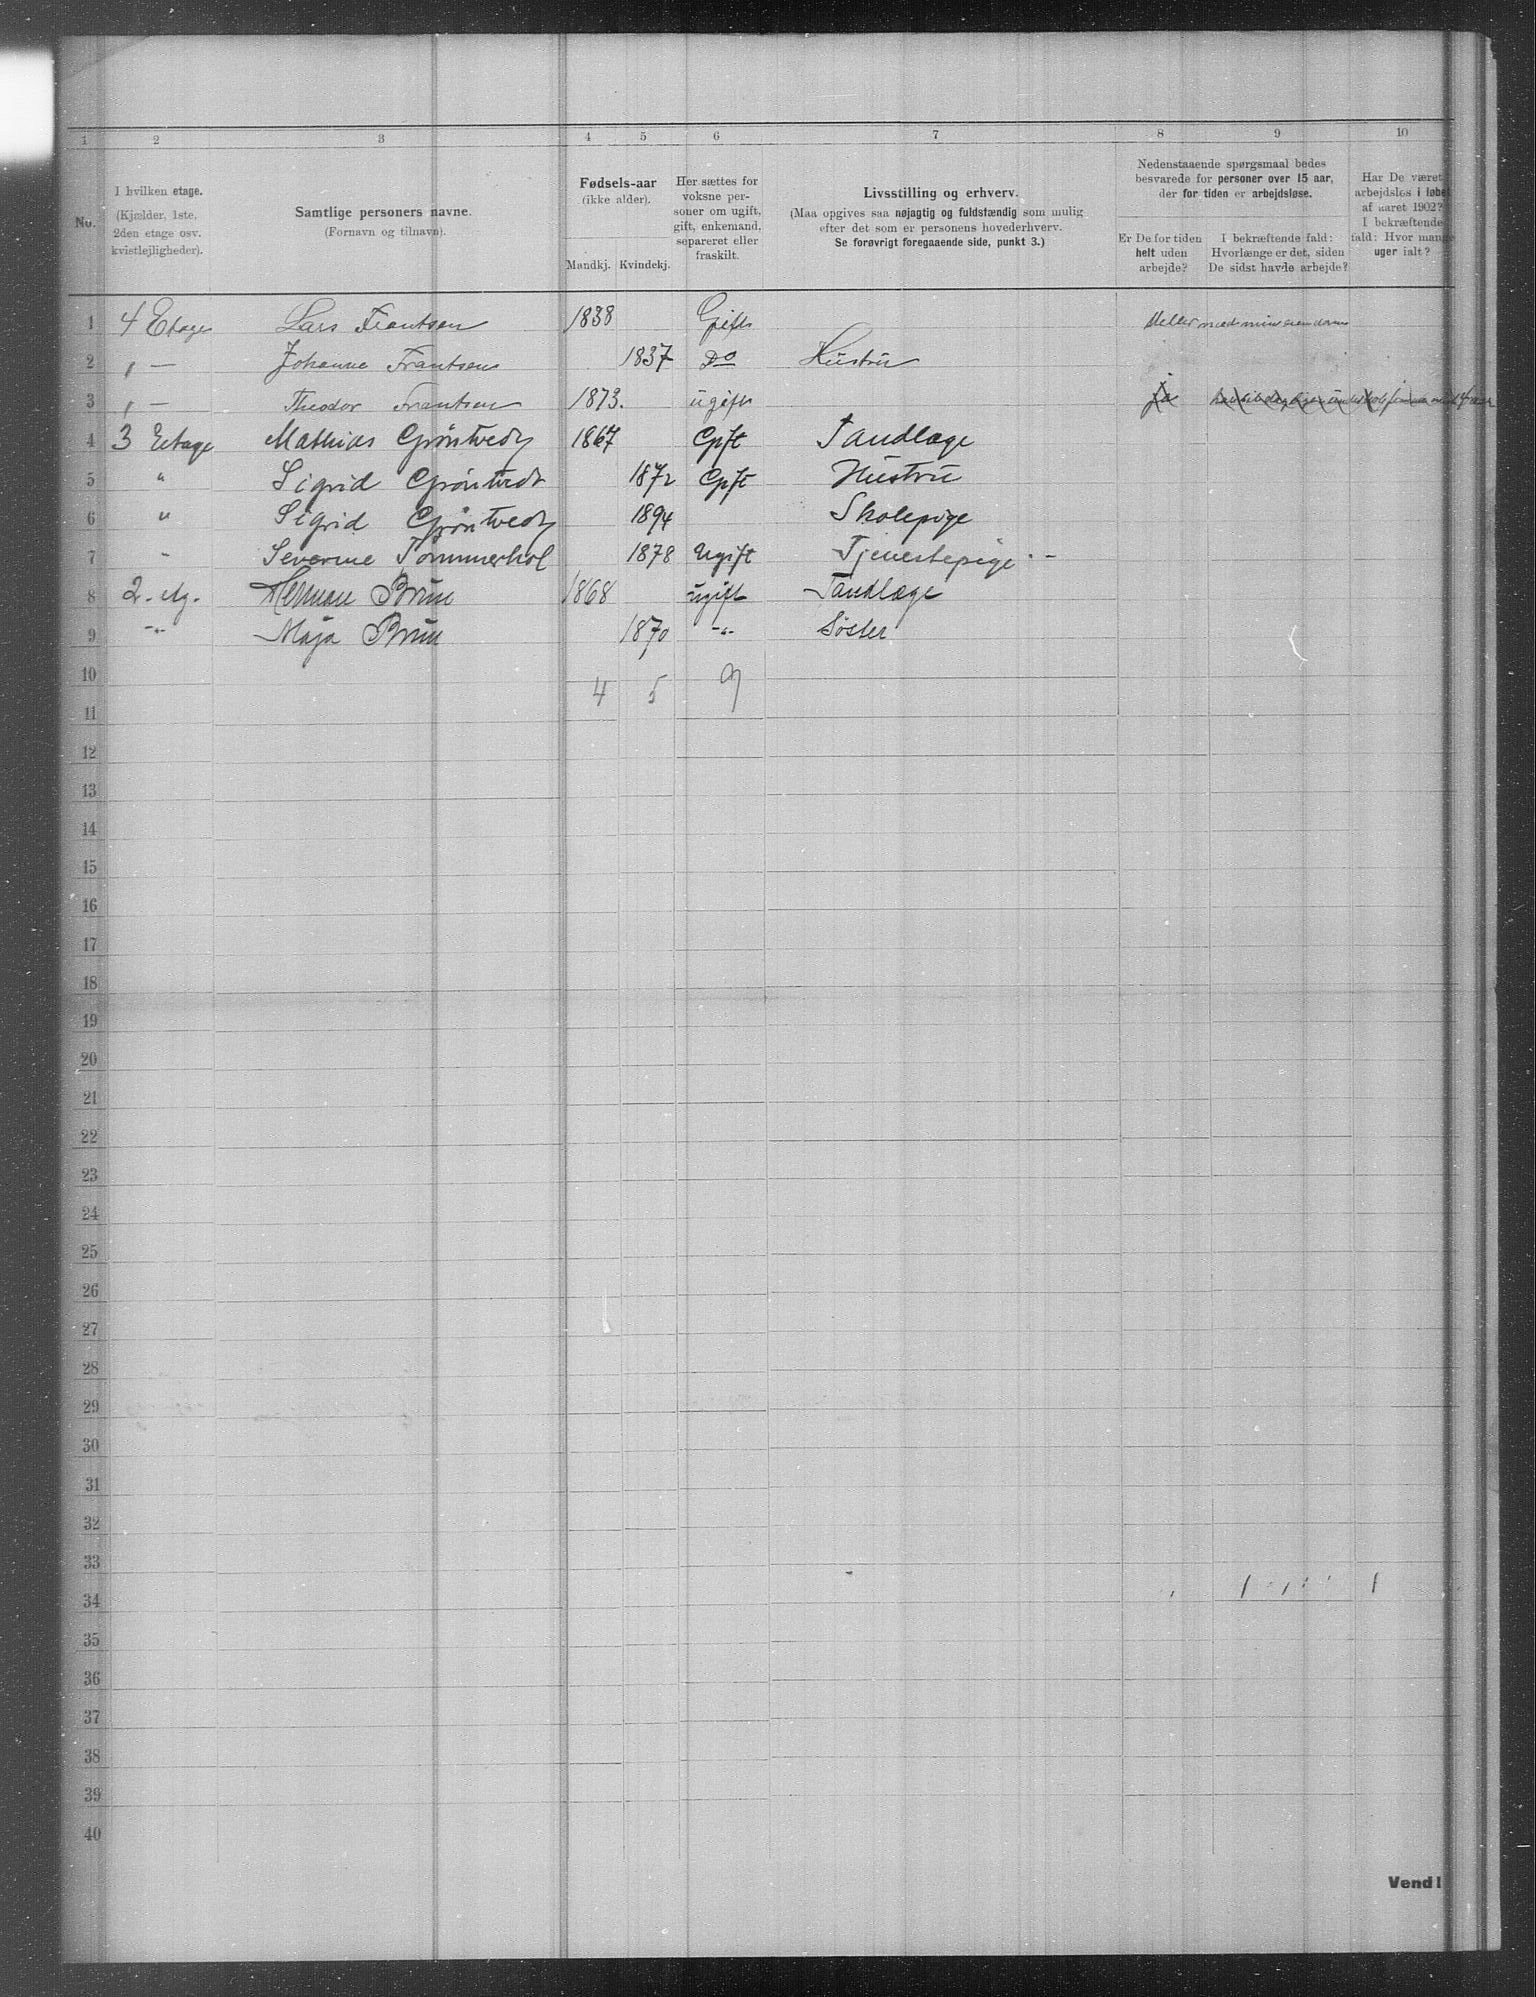 1 2 3 4 5 6 7 8 9 10
No.
I hvilken etage.
(Kjælder, 1ste,
2den etage osv.
kvistlejligheder).
Samtlige personers navne.
(Fornavn og tilnavn).
Fødsels-aar
(ikke alder).
Mandkj. Kvindekj.
Her sættes for
voksne per-
soner om ugift,
gift, enkemand,
separeret eller
fraskilt.
Livsstilling og erhverv.
(Maa opgives saa nøjagtig og fuldstændig som mulig
efter det som er personens hovederhverv.
Se forøvrigt foregaaende side, punkt 3.)
Nedenstaaende spørgsmaal bedes
besvarede for personer over 15 aar,
der for tiden er arbejdsløse.
Er De for tiden
helt uden
arbejde?
I bekræftende fald:
Hvorlænge er det, siden
De sidst havde arbejde?
Har De været
arbejdsløs i løbet
af aaret 1902?
I bekræftende
fald: Hvor mange
uger ialt?
1 4 Etage Lars Frantsen 1838 Gift
2 " — Johanne Frantsen 1837 Do Hustru
3 " — Theodor Frantsen 1873. ugift ja
4 3 Etage Mathias Grøntvedt 1867 Gift Tandlæge
5 " Sigrid Grøntvedt 1872 Gift Hustru
6 " Sigrid Grøntvedt 1894 Skolepige
7 " Severine Tømmerhol 1878 Ugift Tjenestepige
8 2. etg. Herman Brun 1868 ugift Tandlæge
9 -"- Maja Brun 1870 -"- Søster
10
4 5 9
11
12
13
14
15
16
17
18
19
20
21
22
23
24
25
26
27
28
29
30
31
32
33
34
35
36
37
38
39
40
Vend!